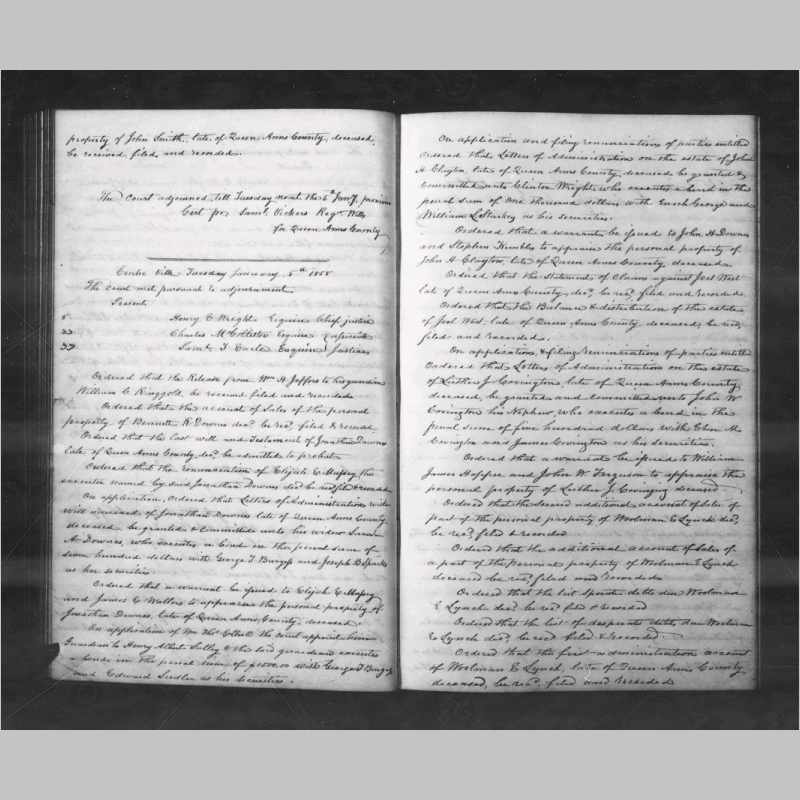 property of John Smith, late of Queen Anns County, deceased,
be received, filed and recorded.
The Court adjourned till Tuesday next the 5th Jany,
Test pr Saml. Vickers Regr. Wills
for Queen Anns County
Centre Ville Tuesday January 5th 1858
The Court met pursuant to adjournment
Present
Henry C Wright Esquire Chief justice
Charles McCollister Esquire
Saml. T. Earle Esquire Justices
Ordered that the Release from Wm H Jeffers to his guardian
William C Ringgold, be received filed and recorded
Ordered that the account of Sales of the personal
property of Bennett R Downes decd. be recd. filed & record.
Ordered that the last will and testament of Jonathan Downes
late of Queen Anns County decd. be admitted to probat
Ordered that the renunciation of Elijah E Massey the
executor named by said Jonathan Downes decd. be recd. fild & recorded
On application, Ordered that Letters of Administration with
Will annexed of Jonathan Downes late of Queen Anns County
deceased be granted & committed unto his widow
A. Downes, who executes a bond in the penal sum of
seven hundred dollars with George T Burgess and Joseph B Sparks
as her securities
Ordered that a warrant be issued to Elijah E Massey
and James E Walters to appraise the personal property of
Jonathan Downes, late of Queen Anns County, deceased.
On application of Wm Thos. the Court appoint him
Guardian to Henry Albert & the said guardian executes
a bond in the penal sum of with George T Burgess
and Edward as his securities.
On application and filing renunciations of parties entitled
Ordered that Letters of Administration on the estate of John
H. Clayton, late of Queen Anns County, deceased be granted &
committed unto Clinton Wright, who executes a bond in the
penal sum of One thousand dollars with Enoch George and
William as his securities.
Ordered that a warrant be issued to John H Downes
and Stephen to appraise the personal property of
John H. Clayton, late of Queen Anns County, deceased.
Ordered that the Statement of Claims against Joel West
late of Queen Anns County, decd. be recd. filed and recorded.
Ordered that the Balance & distribution of the estate
of Joel West, late of Queen Anns County deceased, be recd.
filed and recorded.
On application, & filing renunciations of parties entitled
Ordered that Letters of Administration on the estate
of Luther J Covington, late of Queen Anns County,
deceased, be granted and committed unto John W
Covington his Nephew, who executes a bond in the
penal sum of five hundred dollars with Eben M.
Covington and James Covington as his securities.
Ordered that a warrant be issued to William
James Hopper and John W Ferguson to appraise the
personal property of Luther J. Covington deceased.
Ordered that the second additional account of Sales of
part of the personal property of Woolman E Lynch decd.
be recd., filed & recorded
Ordered that the additional account of Sales of
a part of the personal property of Woolman E Lynch
deceased be recd., filed and recorded
Ordered that the list Sperate debts due Woolman
E Lynch decd. be recd. filed & recorded
Ordered that the list of desperate debts due Woolman
E Lynch decd., be recd. filed & recorded.
Ordered that the first administration account
of Woolman E Lynch, late of Queen Anns County,
deceased, be recd. filed and recorded